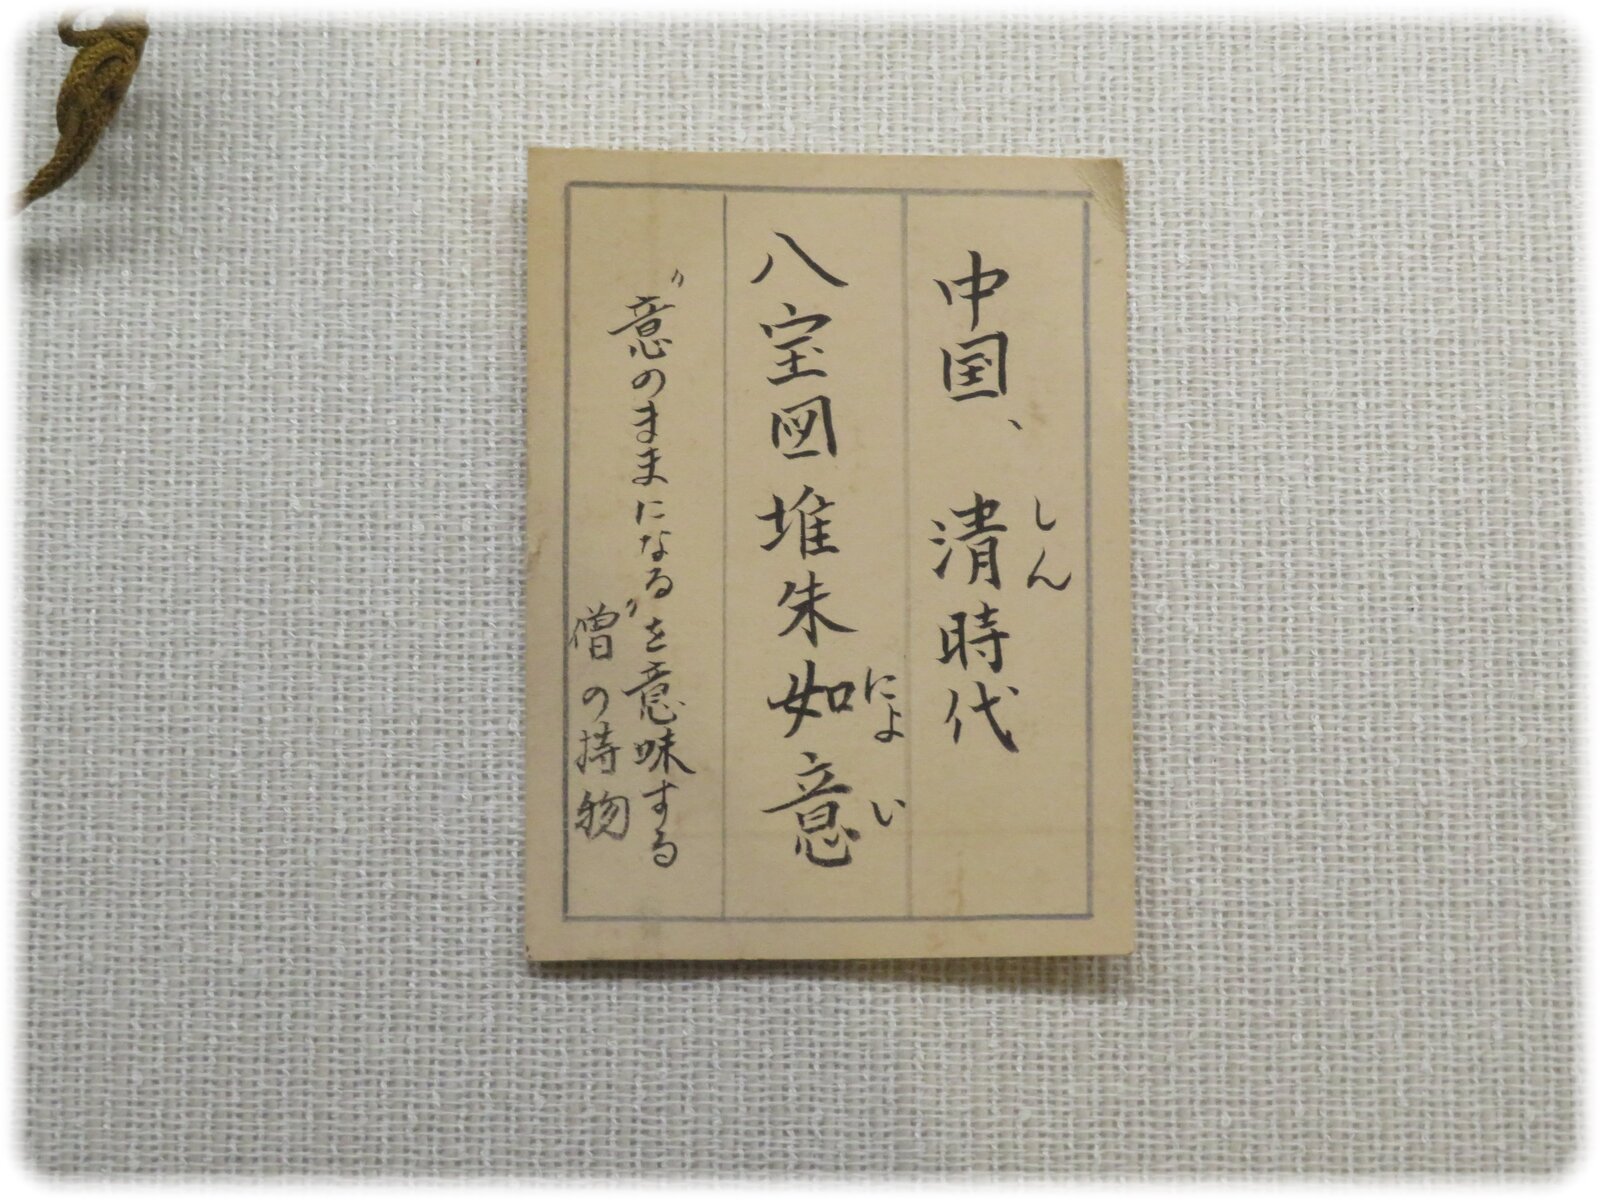 中国、清時代
しん
八宝図堆朱如意
によい
〃意のままになる〃を意味する
僧の持物